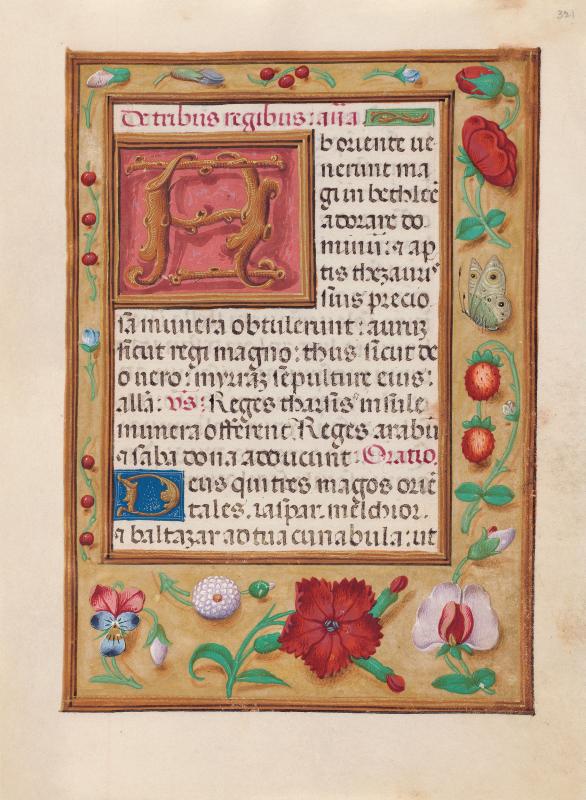 321
De tribus regibus: aña
Ab oriente ue
nerunt ma
gi in bethleē
adorare do
minū: ⁊ ap
tis thezauris
suis precio
sa munera obtulerunt: aurū
sicut regi magno: thus sicut de
o uero: myrrā sepulture eius:
alla: vs: Reges tharsis insule
munera offerent. Reges arabū
⁊ saba dona adducunt: Oratio.
Deus qui tres magos oriē
tales. iaspar. melchior.
⁊ baltazar ad tua cunabula: ut